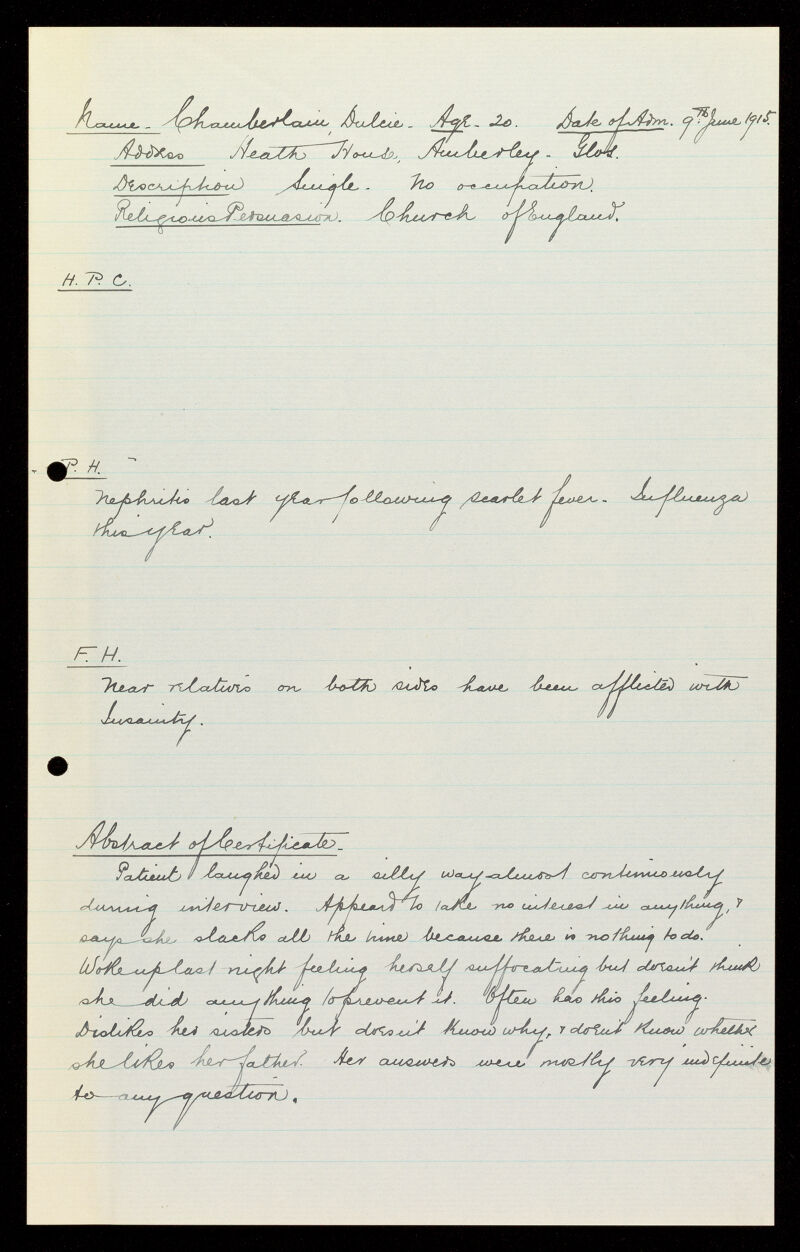 Name - Chamberlain, Dulcie - Age - 20. Date of Adm. 9th June 1915.
Address Heath House, Amberley - Glos.
Description Single - No occupation.
Religious Persuasion. Church of England.
H. P. C.
P. H. -
Nephritis last year following scarlet fever - Influenza
this year.
F. H.
Near relatives on both sides have been afflicted with
Insanity.
Abstract of Certificate -
Patient laughed in a silly way almost continuously
during interview. Appeared to take no interest in anything, &
says she slacks all the time because there is nothing to do.
Woke up last night feeling herself suffocating but doesn't think
she did anything to prevent it. Often has this feeling.
Dislikes her sisters but doesn't know why, & doesn't know whether
she likes her father. Her answers were mostly very indefinite
to any question.